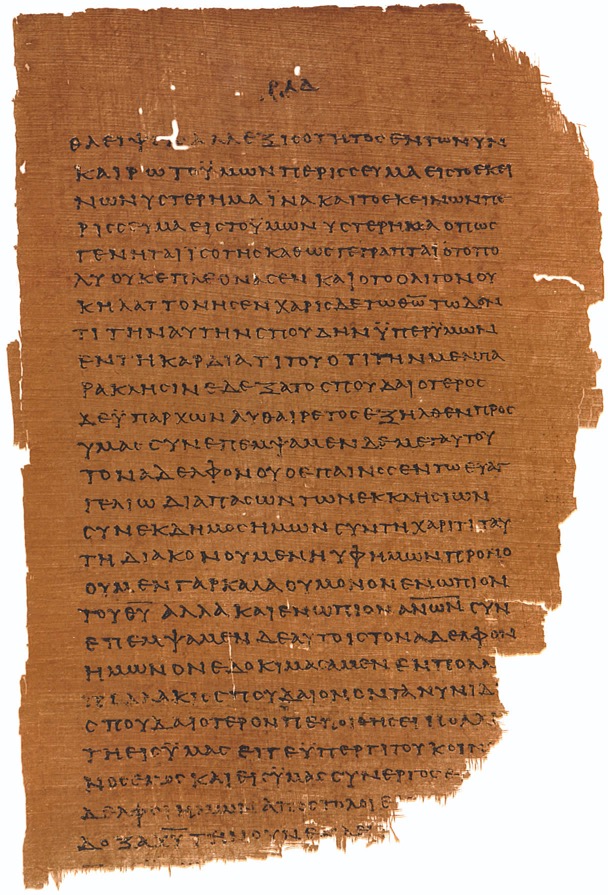 ΡΛΔ
ΘΛΕΙΨ ΑΛΛ ΕΞ ΙϹΟΤΗΤΟϹ ΕΝ ΤΩ ΝΥΝ
ΚΑΙΡΩ ΤΟ ΫΜΩΝ ΠΕΡΙϹϹΕΥΜΑ ΕΙϹ ΤΟ ΕΚΕΙ
ΝΩΝ ΥϹΤΕΡΗΜΑ ΪΝΑ ΚΑΙ ΤΟ ΕΚΕΙΝΩΝ ΠΕ
ΡΙϹϹΕΥΜΑ ΕΙϹ ΤΟ ΫΜΩΝ ΥϹΤΕΡΗΜΑ ΟΠΩϹ
ΓΕΝΗΤΑΙ ΙϹΟΤΗϹ ΚΑΘΩϹ ΓΕΓΡΑΠΤΑΙ Ο ΤΟ ΠΟ
ΛΥ ΟΥΚ ΕΠΛΕΟΝΑϹΕΝ ΚΑΙ Ο ΤΟ ΟΛΙΓΟΝ ΟΥ
Κ ΗΛΑΤΤΟΝΗϹΕΝ ΧΑΡΙϹ ΔΕ ΤΩ Θ̅Ω̅ ΤΩ ΔΟΝ
ΤΙ ΤΗΝ ΑΥΤΗΝ ϹΠΟΥΔΗΝ ΫΠΕΡ ΫΜΩΝ
ΕΝ ΤΗ ΚΑΡΔΙΑ ΤΙΤΟΥ ΟΤΙ ΤΗΝ ΜΕΝ ΠΑ
ΡΑΚΛΗϹΙΝ ΕΔΕΞΑΤΟ ϹΠΟΥΔΑΙΟΤΕΡΟϹ
ΔΕ ΫΠΑΡΧΩΝ ΑΥΘΑΙΡΕΤΟϹ ΕΞΗΛΘΕΝ ΠΡΟϹ
ΥΜΑϹ ϹΥΝΕΠΕΜΨΑΜΕΝ ΔΕ ΜΕΤ ΑΥΤΟΥ
ΤΟΝ ΑΔΕΛΦΟΝ ΟΥ Ο ΕΠΑΙΝΟϹ ΕΝ ΤΩ ΕΥΑΓ
ΓΕΛΙΩ ΔΙΑ ΠΑϹΩΝ ΤΩΝ ΕΚΚΛΗϹΙΩΝ
ϹΥΝΕΚΔΗΜΟϹ ΗΜΩΝ ϹΥΝ ΤΗ ΧΑΡΙΤΙ ΤΑΥ
ΤΗ ΔΙΑΚΟΝΟΥΜΕΝΗ ΥΦ ΗΜΩΝ ΠΡΟΝΟ
ΟΥΜΕΝ ΓΑΡ ΚΑΛΑ ΟΥ ΜΟΝΟΝ ΕΝΩΠΙΟΝ
ΤΟΥ Θ̅Υ̅ ΑΛΛΑ ΚΑΙ ΕΝΩΠΙΟΝ Α̅Ν̅Ω̅Ν̅ ϹΥΝ
ΕΠΕΜΨΑΜΕΝ ΔΕ ΑΥΤΟΙϹ ΤΟΝ ΑΔΕΛΦΟΝ
ΗΜΩΝ ΟΝ ΕΔΟΚΙΜΑϹΑΜΕΝ ΕΝ ΠΟΛΛ
ΠΟΛΛΑΚΙϹ ϹΠΟΥΔΑΙΟΝ ΟΝΤΑ ΝΥΝΙ Δ
ϹΠΟΥΔΑΙΟΤΕΡΟΝ ΠΕΠΟΙΘΗϹΕΙ ΠΟΛΛ
ΤΗ ΕΙϹ ΫΜΑϹ ΕΙΤΕ ΫΠΕΡ ΤΙΤΟΥ ΚΟΙΝ
ΝΟϹ ΕΜΟϹ ΚΑΙ ΕΙϹ ΫΜΑϹ ϹΥΝΕΡΓΟϹ Ε
ΔΕΛΦΟΙ ΗΜΩΝ ΑΠΟϹΤΟΛΟΙ Ε
ΔΟΞΑ Χ̅Υ̅ ΤΗΝ ΟΥΝ ΕΝΔΕΙ